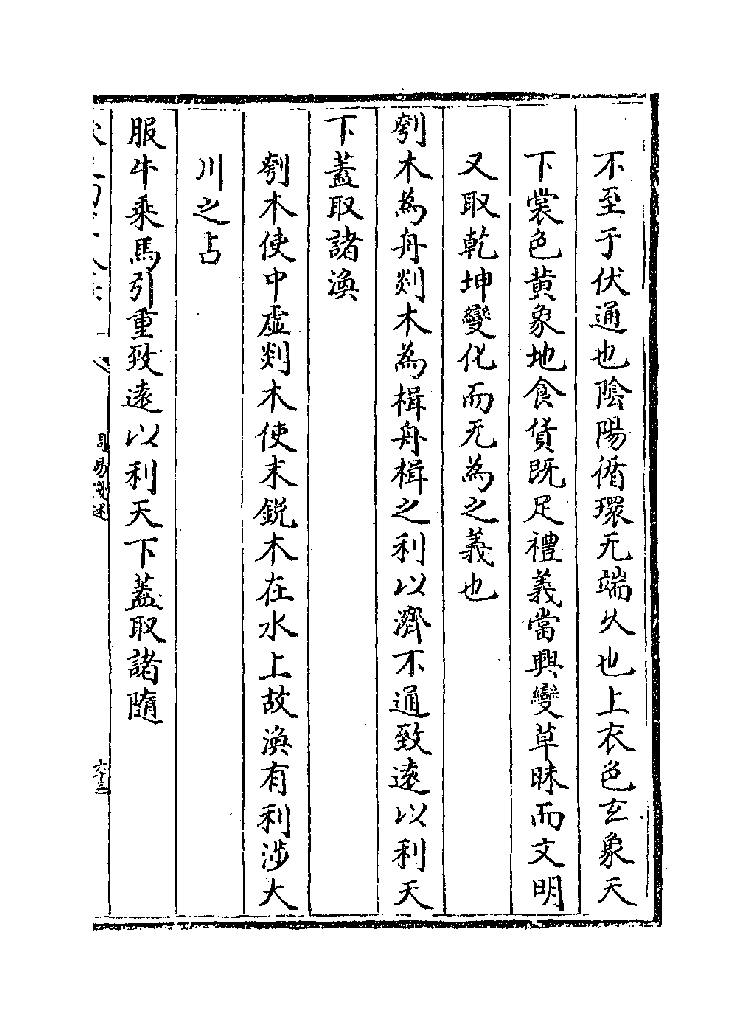 不至于伏通也陰陽循環无端久也上衣色玄象天
下裳色黄象地食貨既足禮義當興變草昧而文明
又取乾坤變化而无為之義也
刳木為舟剡木為楫舟楫之利以濟不通致逺以利天
下蓋取諸渙
刳木使中虚剡木使末鋭木在水上故渙有利涉大
川之占
服牛乘馬引重致逺以利天下蓋取諸隨
周易窽述